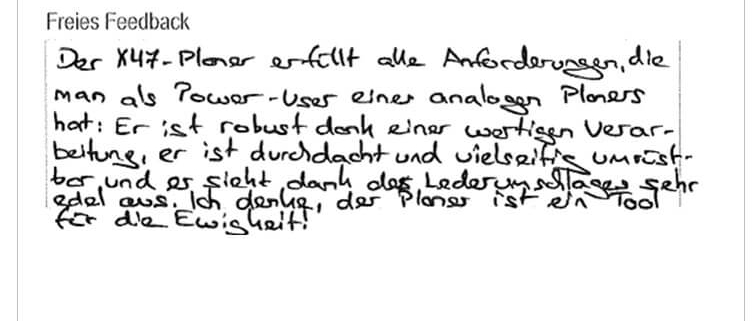 Freies Feedback
Der X47-Planer erfüllt alle Anforderungen, die
man als Power-User eines analogen Planers
hat: Er ist robust dank einer wertigen Verar-
beitung, er ist durchdacht und vielseitig umrüst-
bar und er sieht dank des Lederumschlages sehr
edel aus. Ich denke, der Planer ist ein Tool
für die Ewigkeit!